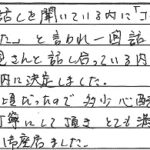 話しを聞いている内に「J
た。」と言われ一回話
見さんと話し合っている内
内に決定しました。
頃だったので多少心配
丁寧にして頂きとても満
吉産店ました。